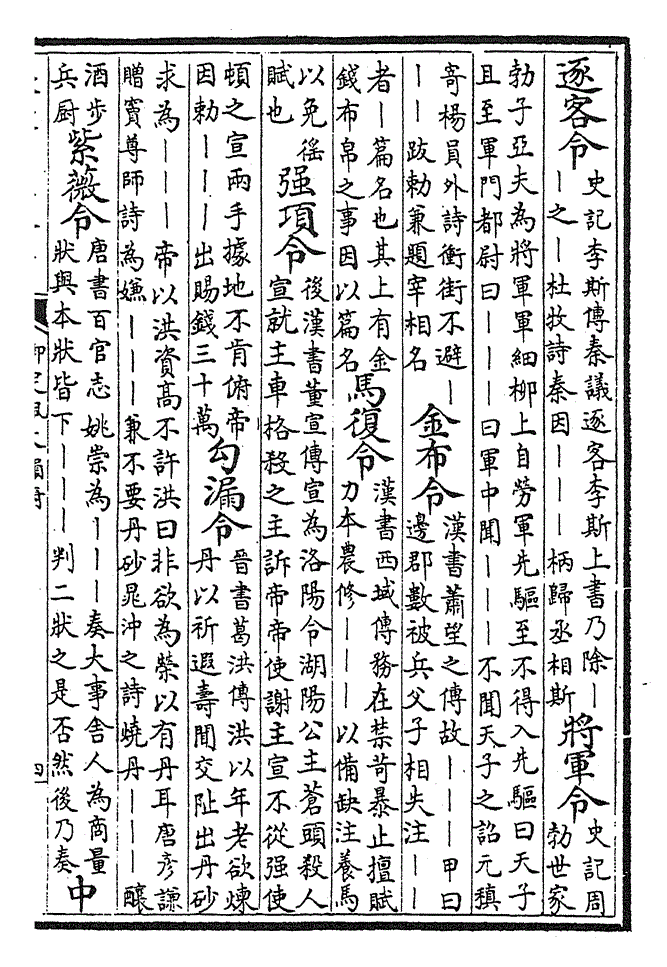 逐客令
史記李斯傳秦議逐客李斯上書乃除丨
丨之丨杜牧詩秦因丨丨丨柄歸丞相斯
將軍令
史記周
勃世家
勃子亞夫為將軍軍細柳上自勞軍先驅至不得入先驅曰天子
且至軍門都尉曰丨丨丨曰軍中聞丨丨丨不聞天子之詔元稹
寄楊員外詩衝街不避丨
丨丨跋勅兼題宰相名
金布令
漢書蕭望之傳故丨丨丨甲曰
邊郡數被兵父子相失注丨丨
者丨篇名也其上有金
錢布帛之事因以篇名
馬復令
漢書西域傳務在禁苛暴止擅賦
力本農修丨丨丨以備缺注養馬
以免徭
賦也
强項令
後漢書董宣傳宣為洛陽令湖陽公主蒼頭殺人
宣就主車格殺之主訴帝帝使謝主宣不從强使
頓之宣兩手據地不肯俯帝
因勅丨丨丨出賜錢三十萬
勾漏令
晉書葛洪傳洪以年老欲煉
丹以祈遐壽聞交阯出丹砂
求為丨丨丨帝以洪資高不許洪曰非欲為榮以有丹耳唐彥謙
贈竇尊師詩為嫌丨丨丨兼不要丹砂晁沖之詩燒丹丨丨丨釀
酒步
兵厨
紫薇令
唐書百官志姚崇為丨丨丨奏大事舍人為商量
狀與本狀皆下丨丨丨判二狀之是否然後乃奏
中